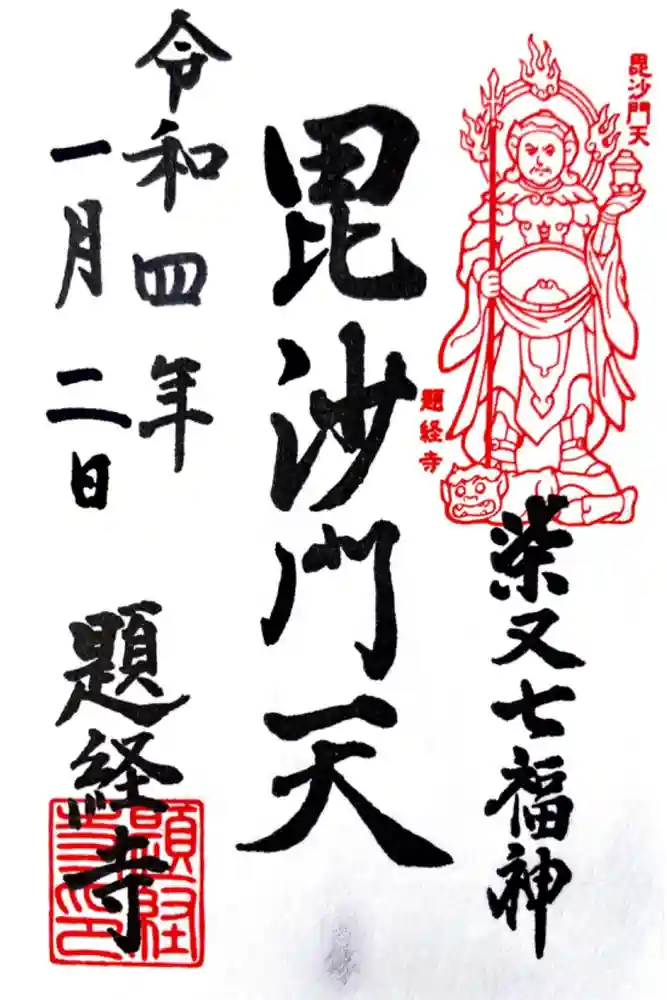 毘沙門天
題経寺
柴又七福神
毘沙門天
令和四年
一月二日
題経寺
題経寺印